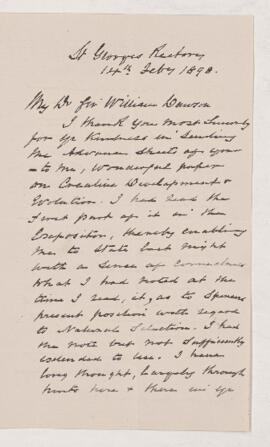 St Georges Rectory
14th Feby 1898.
My Dr Sir William Dawson
I thank you most sincerely
for yr kindness in sending
me advance sheets of your
- to me, wonderful paper
on Creative Development &
Evolution. I had read the
first part of it in the
Expositor, thereby enabling
me to state last night
with a sense of correctness
what I had noted at the
time I read, it, as to Spencers
present position with regard
to Natural Selection. I had
the note but not sufficiently
extended to use. I have
long thought, largely through
hints here & there in yr